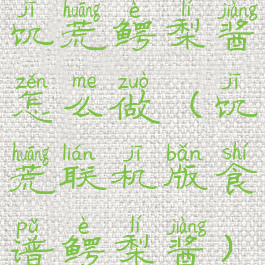 jī huāng è lí jiàng
饥荒鳄梨酱
zěn me zuò jī
怎么做（饥
huāng lián jī bǎn shí
荒联机版食
pǔ è lí jiàng
谱鳄梨酱）